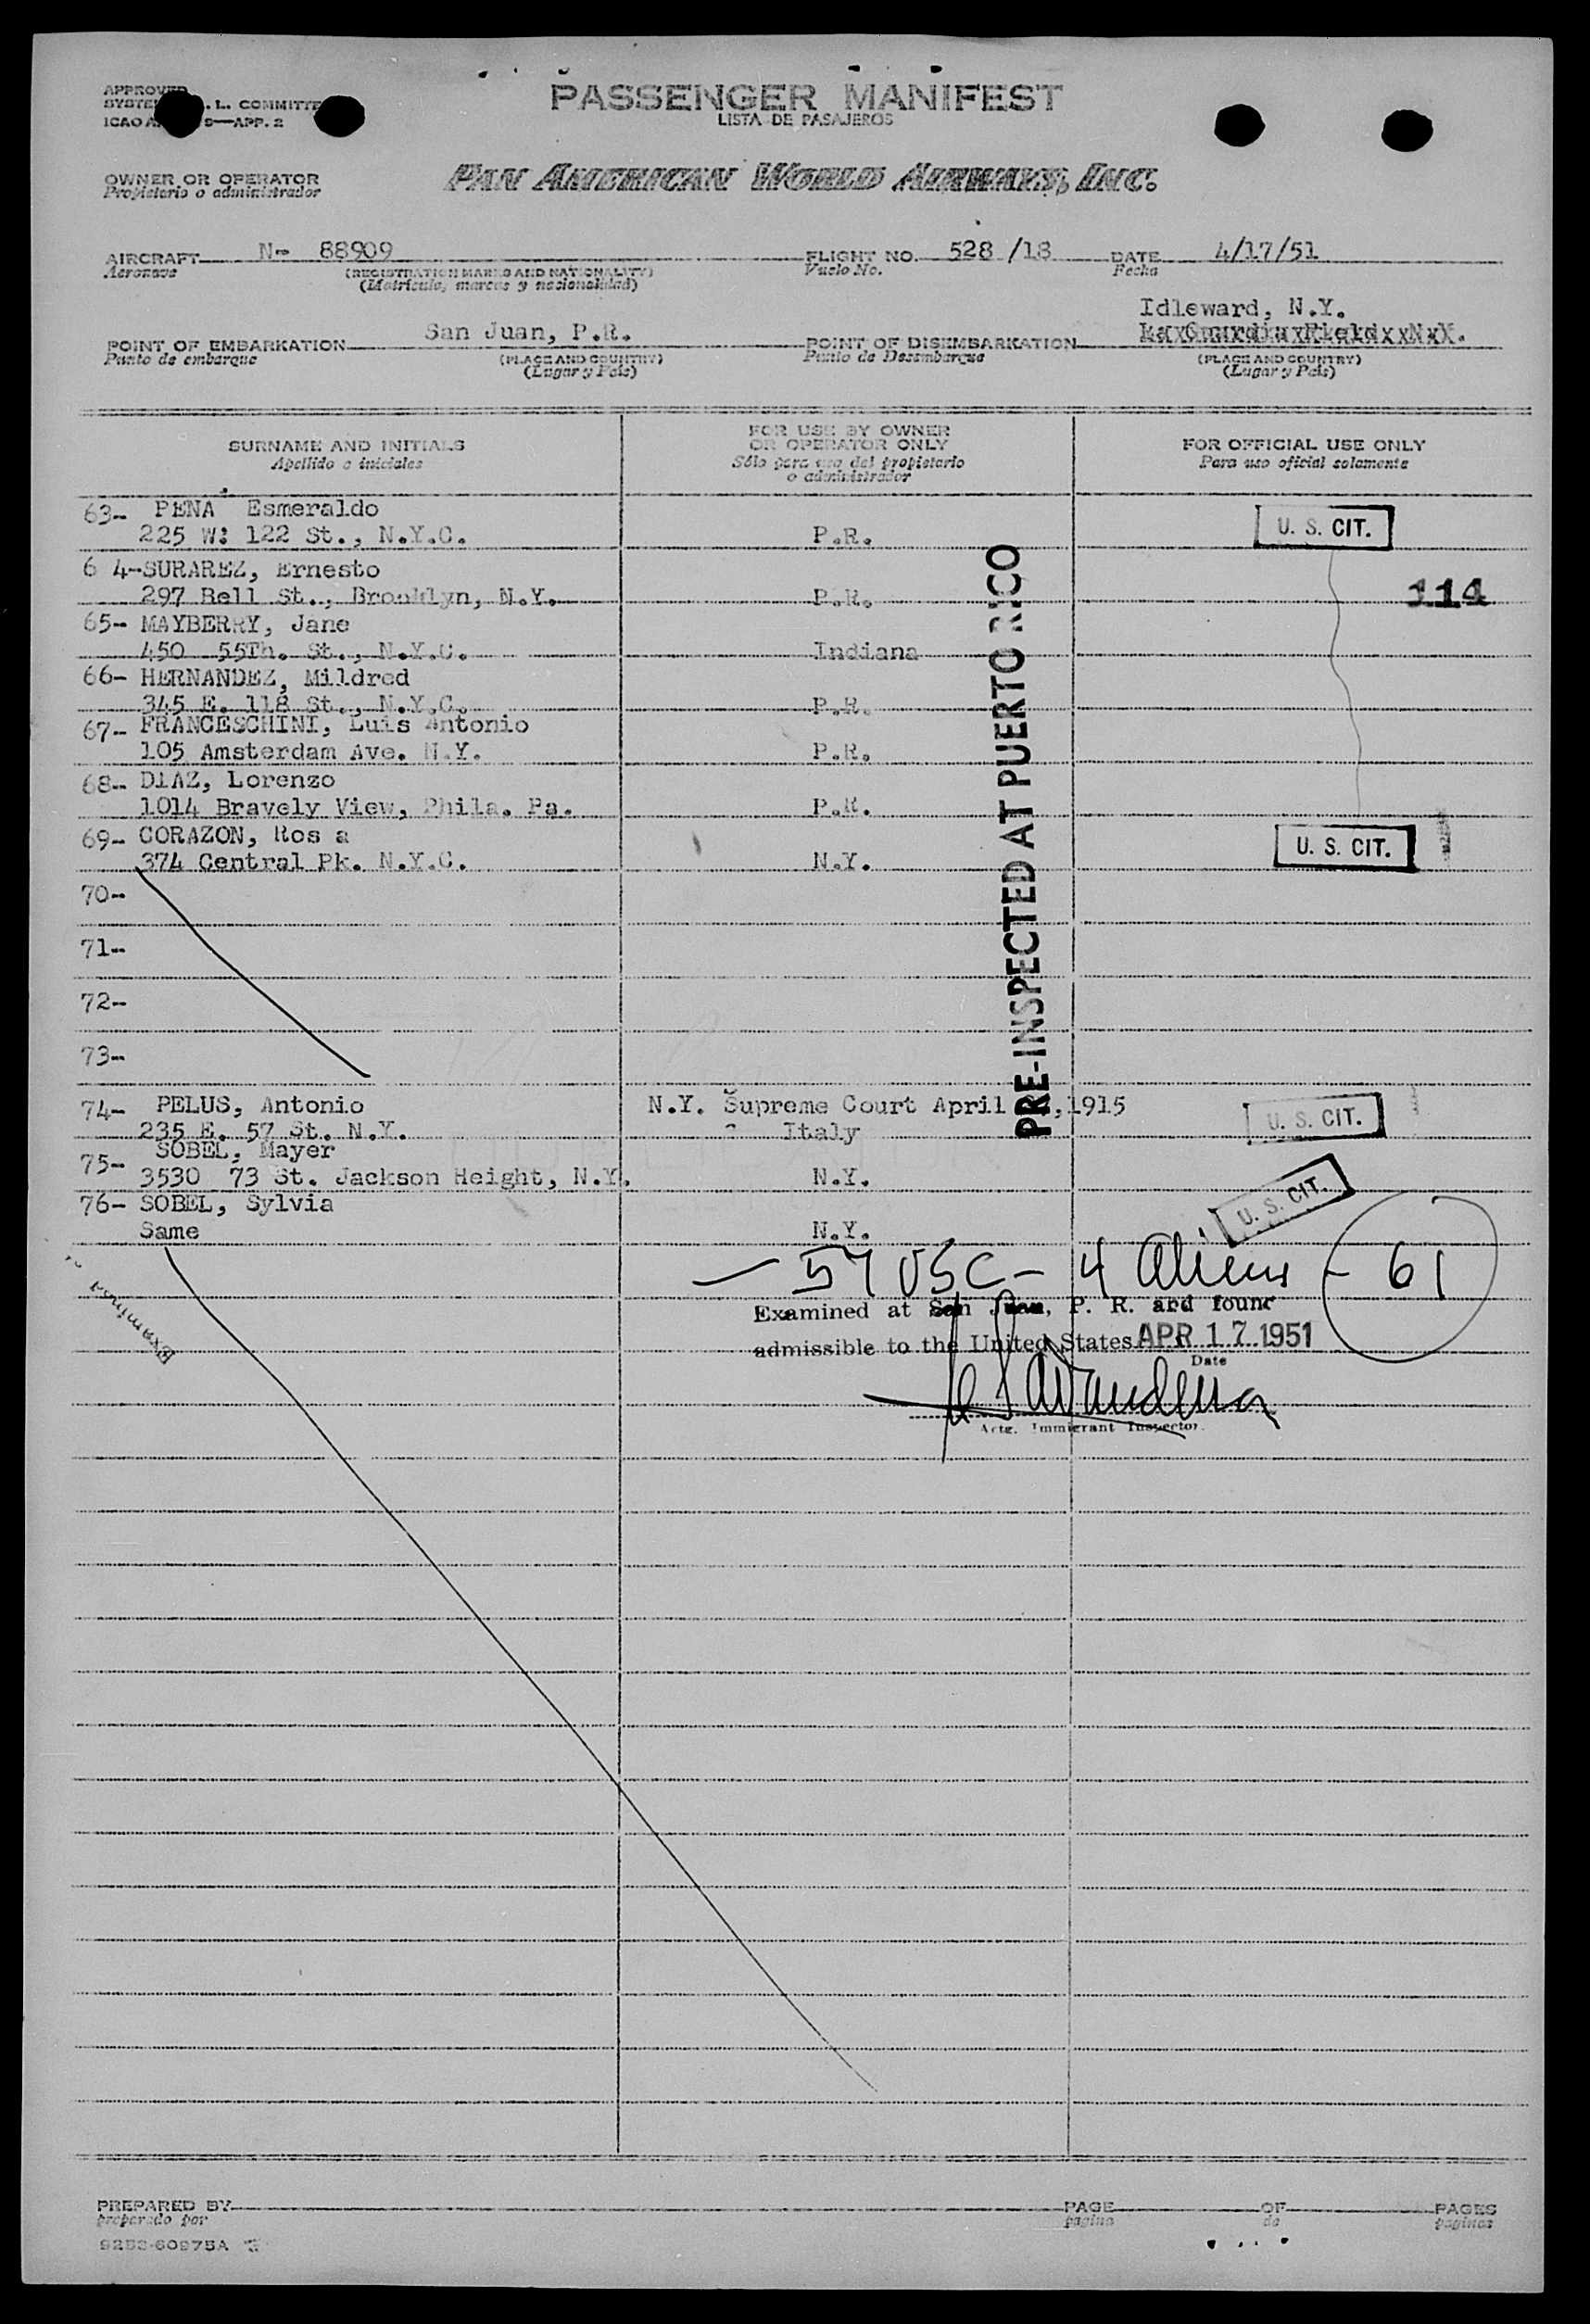 PASSENGER MANIFEST
LISTA DE PASAJEROS
APPROVED
ICAO
APP. 2
OWNER OR OPERATOR
Propietario o administrador
PAN AMERICAN WORLD AIRWAYS, INC.
AIRCRAFT N- 88909 FLIGHT NO. 528 /18 DATE 4/17/51
Aeronave (REGISTRATION MARKS AND NATIONALITY) Vuelo No. Fecha
(Matricula, marcas y nacionalidad)
Idleward, N.Y.
POINT OF EMBARKATION San Juan, P.R. POINT OF DISEMBARKATION
Punto de embarque (PLACE AND COUNTRY) Punto de Desembarque (PLACE AND COUNTRY)
(Lugar y Pais) (Lugar y Pais)
SURNAME AND INITIALS FOR USE BY OWNER OR OPERATOR ONLY FOR OFFICIAL USE ONLY
Apellido e iniciales Sólo para uso del propietario o administrador Para uso oficial solamente
63- PENA Esmeraldo
225 W: 122 St., N.Y.C. P.R. U. S. CIT.
6 4-SURAREZ, Ernesto
297 Bell St., Brooklyn, N.Y. P.R. 114
65- MAYBERRY, Jane
450 55Th. St., N.Y.C. Indiana
66- HERNANDEZ, Mildred
345 E. 118 St., N.Y.C. P.R.
67- FRANCESCHINI, Luis Antonio
105 Amsterdam Ave. N.Y. P.R.
68- DIAZ, Lorenzo
1014 Bravely View, Phila. Pa. P.R.
69- CORAZON, Ros a
374 Central Pk. N.Y.C. N.Y. U. S. CIT.
70-
71-
72-
73-
PRE-INSPECTED AT PUERTO RICO
74- PELUS, Antonio N.Y. Supreme Court April ,1915
235 E. 57 St. N.Y. Italy U. S. CIT.
75- SOBEL, Mayer
3530 73 St. Jackson Height, N.Y. N.Y.
76- SOBEL, Sylvia U. S. CIT.
Same N.Y.
— 57 USC - 4 Aliens - 61
Examined at San Juan, P. R. and found
admissible to the United States APR 17 1951
Date
Actg. Immigrant Inspector
Examined
PREPARED BY PAGE OF PAGES
preparado por pagina de paginas